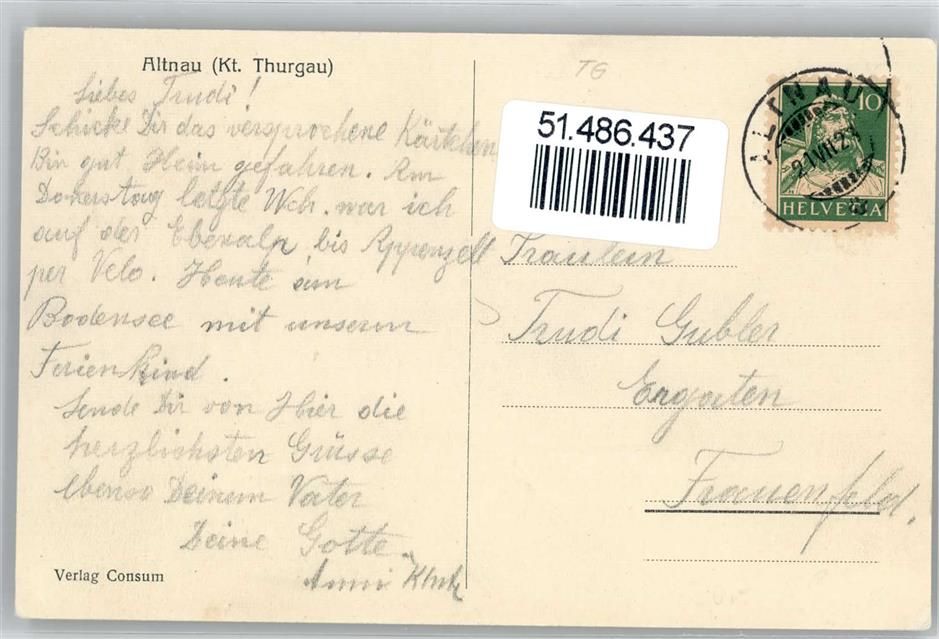 Altnau (Kt. Thurgau)
Liebes Trudi!
Schicke Dir das versprochene Kärtchen
Bin gut Heim gefahren. Am
Donerstag letzte Wch. war ich
auf der Ebenalp bis Appenzell
per Velo. Heute am
Bodensee mit unserem
Ferienkind.
Sende Dir von Hier die
herzlichsten Grüsse
ebenso Deinem Vater
Deine Gotte
Anni
Verlag Consum
TG
51.486.437
10
HELVETIA
Fräulein
Trudi Gubler
Ergaten
Frauenfeld.